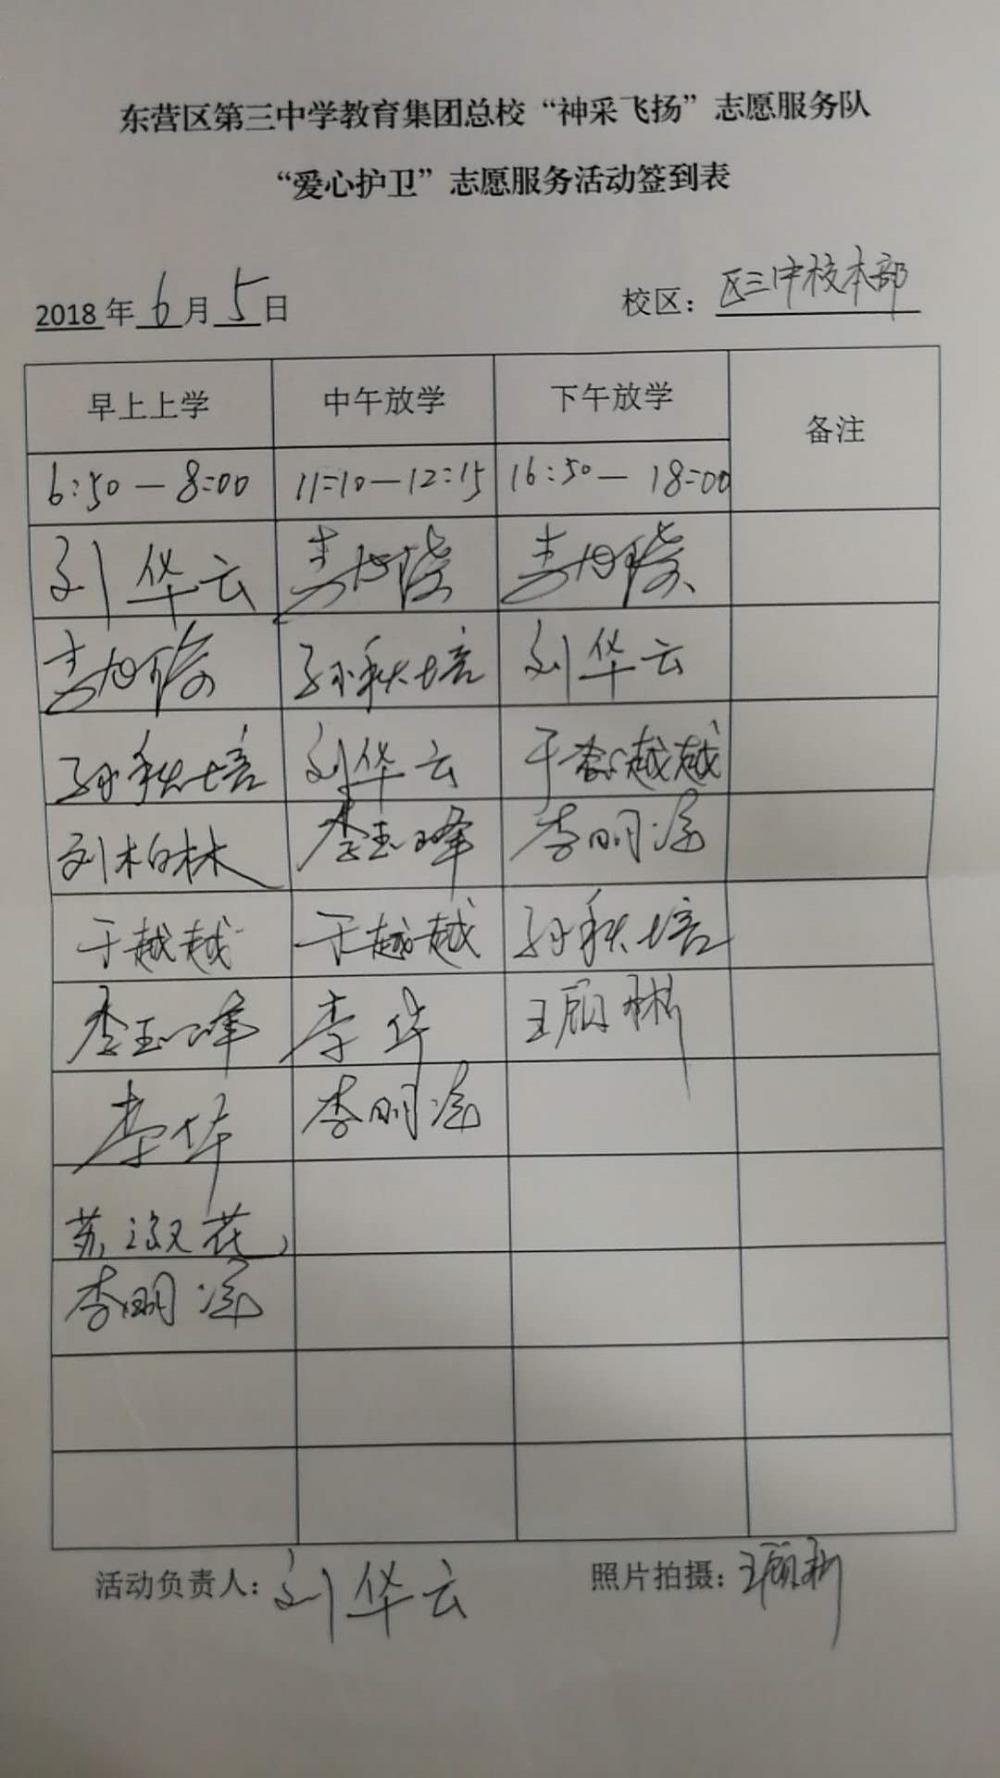 东营区第三中学教育集团总校“神采飞扬”志愿服务队
“爱心护卫”志愿服务活动签到表
2018年6月5日 校区：区三中校本部
早上上学 中午放学 下午放学 备注
6:50—8:00 11:10—12:15 16:50—18:00
刘华云
孙秋培 刘华云
孙秋培 刘华云 于越越
刘柏林 李玉峰 李明涂
于越越 于越越 孙秋培
李玉峰 李华 王丽彬
李华 李明涂
苏淑花
李明涂
活动负责人：刘华云 照片拍摄：王丽彬